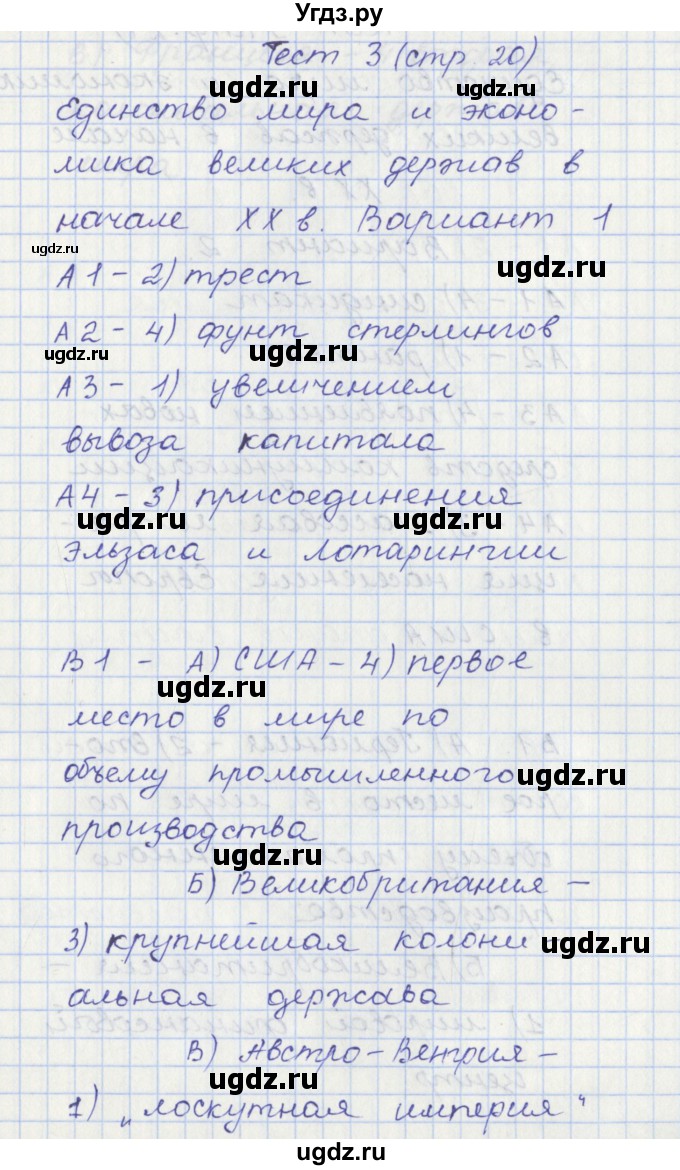 Угдз.ру
Тест 3 (стр. 20)
ugdz.ru ugdz.ru
Единство мира и эконо-
мика великих держав в
начале XX в. Вариант 1
ugdz.ru ugdz.ru
А1 - 2) трест
А2 - 4) фунт стерлингов
ugdz.ru ugdz.ru
А3 - 1) увеличением
вывоза капитала
А4 - 3) присоединения
ugdz.ru ugdz.ru
Эльзаса и Лотарингии
В1 - А) США - 4) первое
ugdz.ru
место в мире по
объему промышленного
ugdz.ru
производства
ugdz.ru
Б) Великобритания -
3) крупнейшая колони
ugdz.ru
альная держава
В) Австро-Венгрия -
ugdz.ru
1) „лоскутная империя"
Угдз.ру